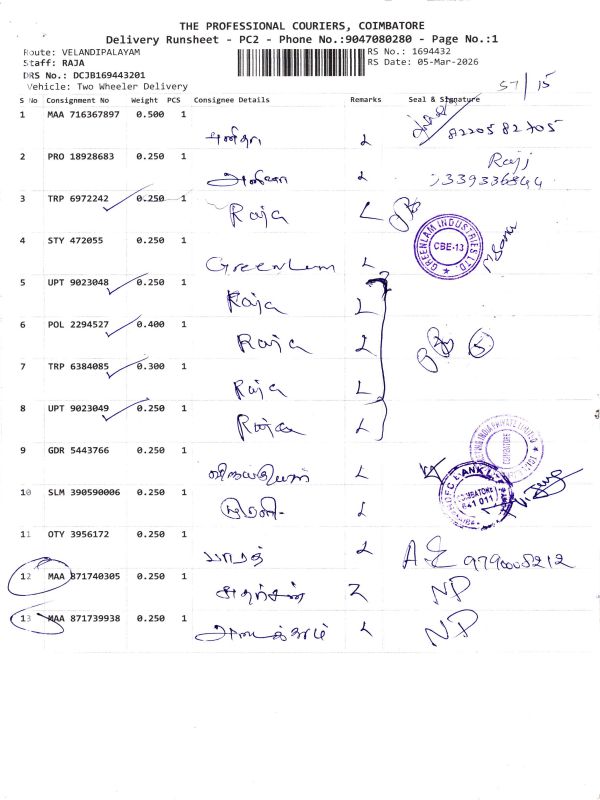 THE PROFESSIONAL COURIERS, COIMBATORE
Delivery Runsheet - PC2 - Phone No.:9047080280 - Page No.:1
Route: VELANDIPALAYAM RS No.: 1694432
Staff: RAJA RS Date: 05-Mar-2026
DRS No.: DCJB169443201
Vehicle: Two Wheeler Delivery 57/15
S No Consignment No Weight PCS Consignee Details Remarks Seal & Signature
1 MAA 716367897 0.500 1
8220582705
2 PRO 18928683 0.250 1 Raji
3 TRP 6972242 0.250 1 Raja L
4 STY 472055 0.250 1 Greenlam L GREENLAM INDUSTRIES LTD. CBE-13
5 UPT 9023048 0.250 1 Raja L
6 POL 2294527 0.400 1 Raja L 5
7 TRP 6384085 0.300 1 Raja L
8 UPT 9023049 0.250 1 Raja L
9 GDR 5443766 0.250 1 L COIMBATORE
10 SLM 390590006 0.250 1 L COIMBATORE 641 011
11 OTY 3956172 0.250 1 L 9790005212
12 MAA 871740305 0.250 1 NP
13 MAA 871739938 0.250 1 L NP